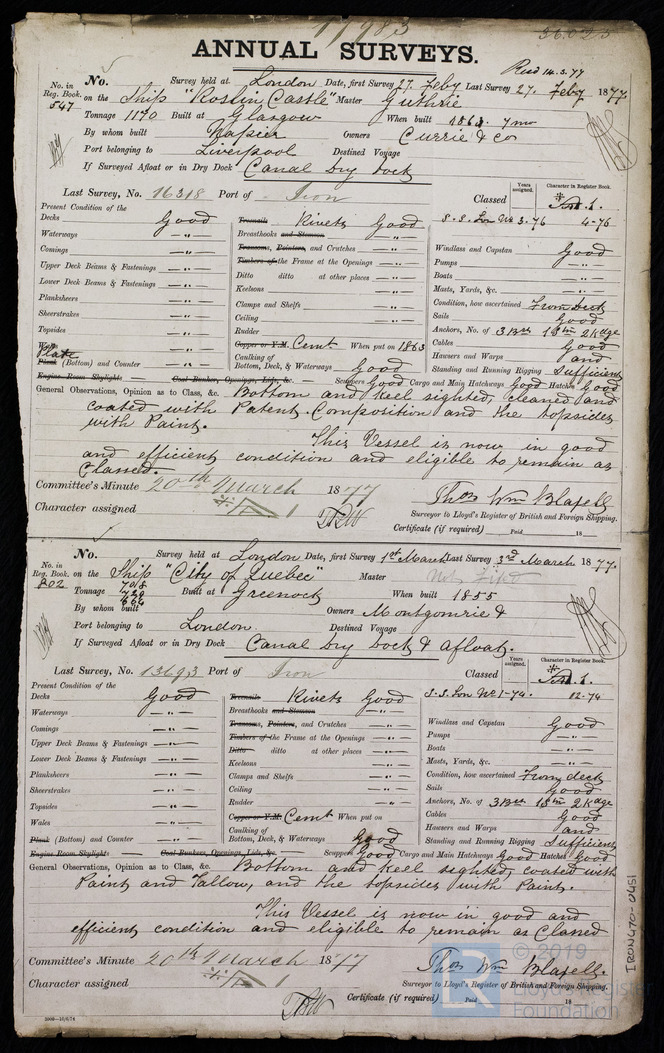 17983
36.025
ANNUAL SURVEYS.
Recd 14.3.77
No. in Reg. Book. 547
No. Survey held at London Date, first Survey 27. Feby Last Survey 27. Feby 1877.
on the Ship "Roslin Castle" Master Guthrie
Tonnage 1190 Built at Glasgow When built 1863. 7mo
By whom built Napier Owners Currie & Co
Port belonging to Liverpool Destined Voyage
If Surveyed Afloat or in Dry Dock Canal Dry Dock
Last Survey, No. 16318 Port of Iron Classed Years assigned. Character in Register Book.
A.1.
S.S. Lon No 3-76 4-76
Present Condition of the
Decks Good
Waterways — „ —
Comings — „ —
Upper Deck Beams & Fastenings — „ —
Lower Deck Beams & Fastenings — „ —
Planksheers — „ —
Sheerstrakes — „ —
Topsides — „ —
Wales — „ —
Plate
Plank (Bottom) and Counter — „ —
Engine Room Skylights — Coal Bunker, Openings, Lids, &c. —
Treenails Rivets Good
Breasthooks and Stemson — „ —
Transoms, Pointers, and Crutches — „ —
Timbers of the Frame at the Openings — „ —
Ditto ditto at other places — „ —
Keelsons — „ —
Clamps and Shelfs — „ —
Ceiling — „ —
Rudder — „ —
Copper or Y.M. Cemt When put on 1863
Caulking of
Bottom, Deck, & Waterways Good
Scuppers Good Cargo and Main Hatchways Good Hatches Good
Windlass and Capstan Good
Pumps — „ —
Boats — „ —
Masts, Yards, &c. — „ —
Condition, how ascertained From deck
Sails Good
Anchors, No. of 3 Brs 1 Stm 2 Kdge
Cables Good
Hawsers and Warps and
Standing and Running Rigging Sufficient
General Observations, Opinion as to Class, &c. Bottom and Keel sighted, cleaned and
coated with Patent. Composition and the topsides
with Paint.
This Vessel is now in good
and efficient condition and eligible to remain as
Classed.
Committee's Minute 20th March 1877
Character assigned
Thos Wm Blafell
Surveyor to Lloyd's Register of British and Foreign Shipping.
Certificate (if required) Paid 18
No. in Reg. Book. 202
No. Survey held at London Date, first Survey 1st March Last Survey 3rd March 1877.
on the Ship "City of Quebec" Master
Tonnage 708 Built at Greenock When built 1855
By whom built Owners Montgomrie &
Port belonging to London Destined Voyage
If Surveyed Afloat or in Dry Dock Canal Dry Dock & afloat.
Last Survey, No. 13693 Port of Iron Classed Years assigned. Character in Register Book.
A.1.
S.S. Lon No 1-74. 12-74
Present Condition of the
Decks Good
Waterways — „ —
Comings — „ —
Upper Deck Beams & Fastenings — „ —
Lower Deck Beams & Fastenings — „ —
Planksheers — „ —
Sheerstrakes — „ —
Topsides — „ —
Wales — „ —
Plank (Bottom) and Counter — „ —
Engine Room Skylights — Coal Bunkers, Openings, Lids, &c.
Treenails Rivets Good
Breasthooks and Stemson — „ —
Transoms, Pointers, and Crutches — „ —
Timbers of the Frame at the Openings — „ —
Ditto ditto at other places — „ —
Keelsons — „ —
Clamps and Shelfs — „ —
Ceiling — „ —
Rudder — „ —
Copper or Y.M. Cemt When put on
Caulking of
Bottom, Deck, & Waterways Good
Scuppers Good Cargo and Main Hatchways Good Hatches Good
Windlass and Capstan Good
Pumps — „ —
Boats — „ —
Masts, Yards, &c. — „ —
Condition, how ascertained From deck
Sails Good
Anchors, No. of 3 Brs 1 Stm 2 Kdge
Cables Good
Hawsers and Warps and
Standing and Running Rigging Sufficient
General Observations, Opinion as to Class, &c. Bottom and Keel sighted, coated with
Paint and Tallow, and the topsides with Paint.
This Vessel is now in good and
efficient condition and eligible to remain as Classed
Committee's Minute 20th March 1877
Character assigned
Thos Wm Blafell.
Surveyor to Lloyd's Register of British and Foreign Shipping.
Certificate (if required) Paid 18
IRON470-0451
© 2019
Lloyd's Register
Foundation